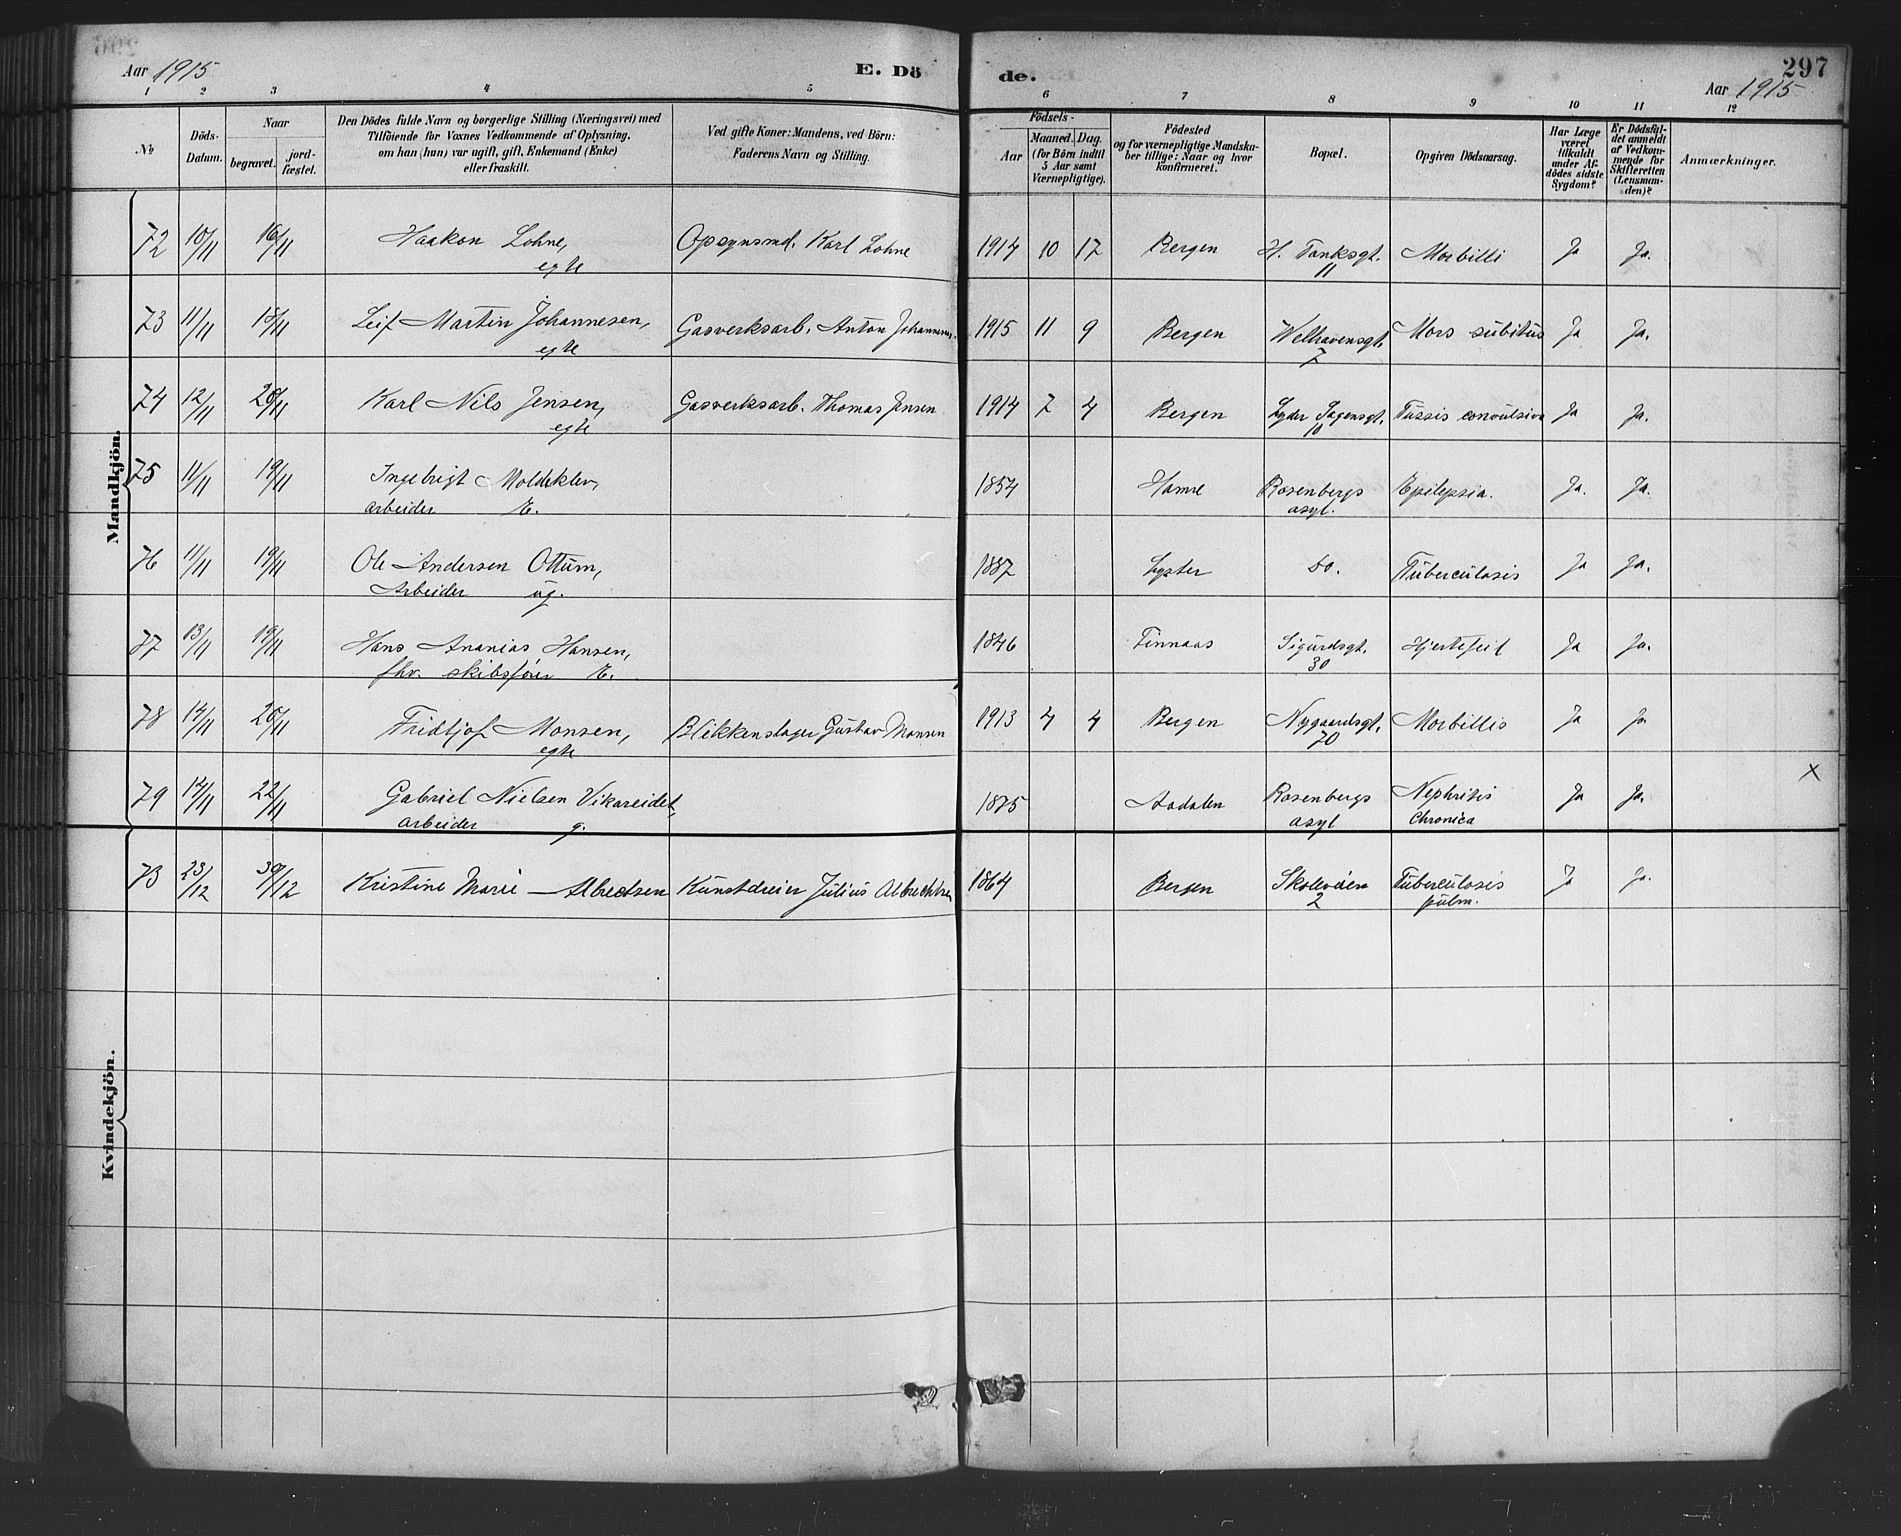 Aar 1915 E. Dö de. 297
Aar 1915
1 2 3 4 5 6 7 8 9 10 11 12
No
Döds-Datum.
Naar
begravet. jordfæstet.
Den Dödes fulde Navn og borgerlige Stilling (Næringsvei) med
Tilföiende for Voxnes Vedkommende af Oplysning,
om han (hun) var ugift, gift, Enkemand (Enke)
eller fraskilt.
Ved gifte Koner: Mandens, ved Börn:
Faderens Navn og Stilling.
Födsels-
Aar Maaned. Dag.
(for Börn indtil
5 Aar samt
Værnepligtige).
Födested
og for værnepligtige Mandskaber
tillige: Naar og hvor
konfirmeret.
Bopæl.
Opgiven Dödsaarsag.
Har Læge
været
tilkaldt
under Afdödes
sidste
Sygdom?
Er Dödsfaldet
anmeldt
af Vedkommende
for
Skifteretten
(Lensmanden)?
Anmærkninger.
Mandkjön.
72 10/11 16/11 Haakon Lohne, Opsynsmd. Karl Lohne 1914 10 17 Bergen H. Tanksgt. Morbilli Ja Ja.
egte 11
73 11/11 18/11 Leif Martin Johannesen, Gasverksarb. Anton Johannesen. 1915 11 9 Bergen Welhavensgt. Mors subitus Ja Ja.
egte 7
74 12/11 20/11 Karl Nils Jensen, Gasverksarb. Thomas Jensen 1914 7 4 Bergen Lyder Sagensgt. Tussis convulsiva Ja Ja.
egte 10
75 11/11 19/11 Ingebrigt Moldeklev, 1854 Hamre Rosenbergs Epilepsia. Ja. Ja.
arbeider E. asyl.
76 11/11 19/11 Ole Andersen Ottum, 1887 Lyster Do. Tuberculosis Ja Ja.
Arbeider ug.
77 13/11 19/11 Hans Ananias Hansen, 1846 Finnaas Sigurdsgt. Hjertefeil Ja Ja.
fhv. skibsfører E. 30
78 14/11 20/11 Fridtjof Monsen, Blikkenslager Gustav Monsen 1913 4 4 Bergen Nygaardsgt. Morbillis Ja Ja
egte 70
79 14/11 22/11 Gabriel Nielsen Vikareidet, 1875 Aadalen Rosenbergs Nephritis Ja Ja. X
arbeider g. asyl Chronica
Kvindekjön.
73 23/12 30/12 Kristine Marie Albrectsen Kunstdreier Julius Albrechtsen 1864 Bergen Skoleveien Tuberculosis Ja Ja.
2 pulm.